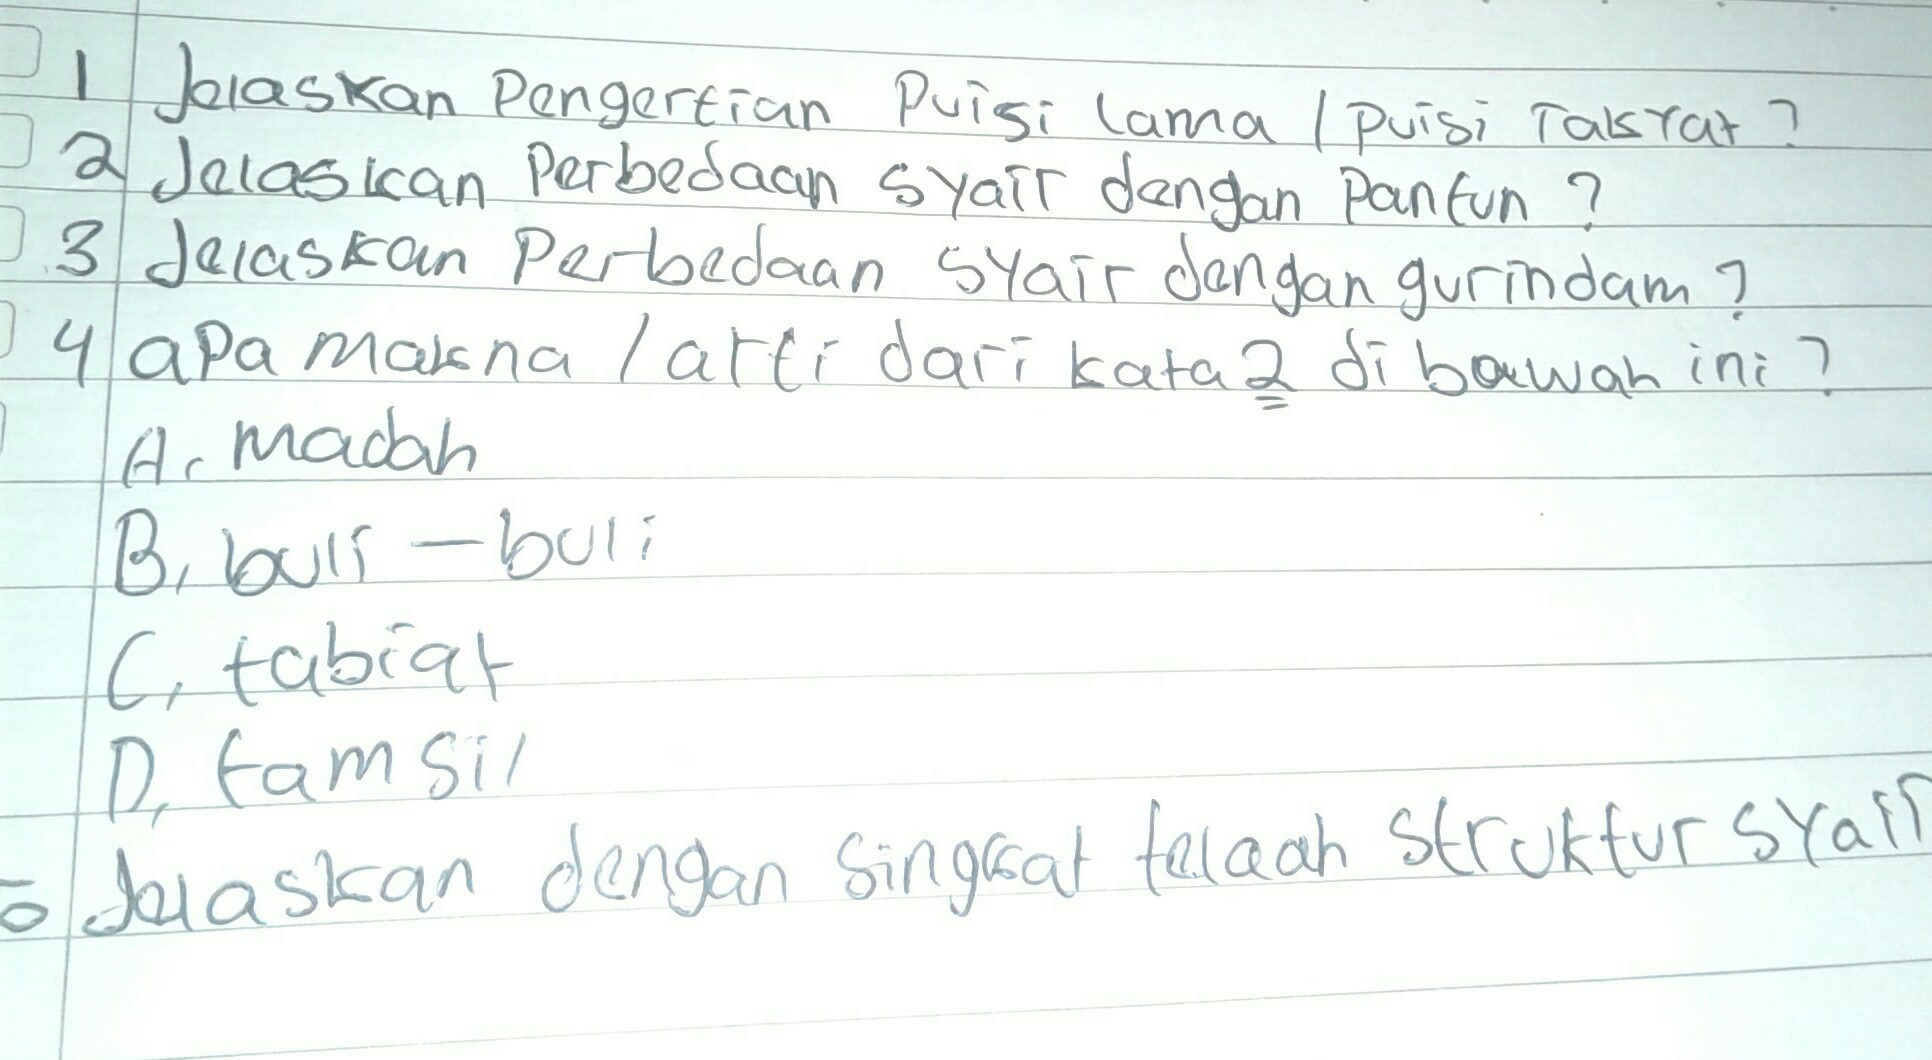 1 Jelaskan Pengertian Puisi lama / puisi rakyat ?
2 Jelaskan Perbedaan syair dengan Pantun ?
3 Jelaskan Perbedaan syair dengan gurindam ?
4 apa makna / arti dari kata2 di bawah ini ?
A. madah
B. buli - buli
C. tabiat
D. tamsil
5 Jelaskan dengan singkat telaah struktur syair